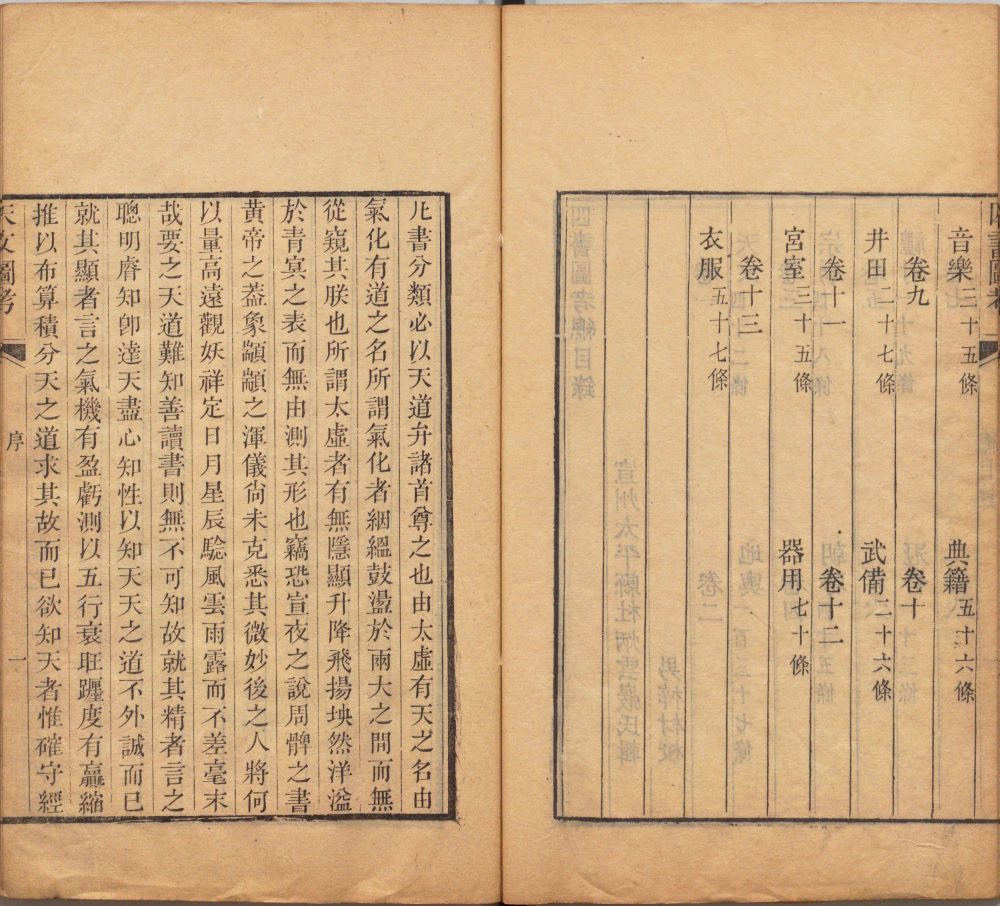 四書圖考
音樂三十五條 典籍五十六條
卷九 卷十
井田二十七條 武備二十六條
卷十一 卷十二
宮室三十五條 器用七十條
卷十三
衣服五十七條
凡書分類必以天道弁諸首尊之也由太虛有天之名由
氣化有道之名所謂氣化者絪縕鼓盪於兩大之間而無
從窺其朕也所謂太虛者有無隱顯升降飛揚坱然洋溢
於青冥之表而無由測其形也竊恐宣夜之說周髀之書
黃帝之葢象顓顓之渾儀尙未克悉其微妙後之人將何
以量高遠觀妖祥定日月星辰騐風雲雨露而不差毫末
哉要之天道難知善讀書則無不可知故就其精者言之
聰明睿知卽達天盡心知性以知天天之道不外誠而已
就其顯者言之氣機有盈虧測以五行衰旺躔度有贏縮
推以布算積分天之道求其故而已欲知天者惟確守經
天文圖考 序 一